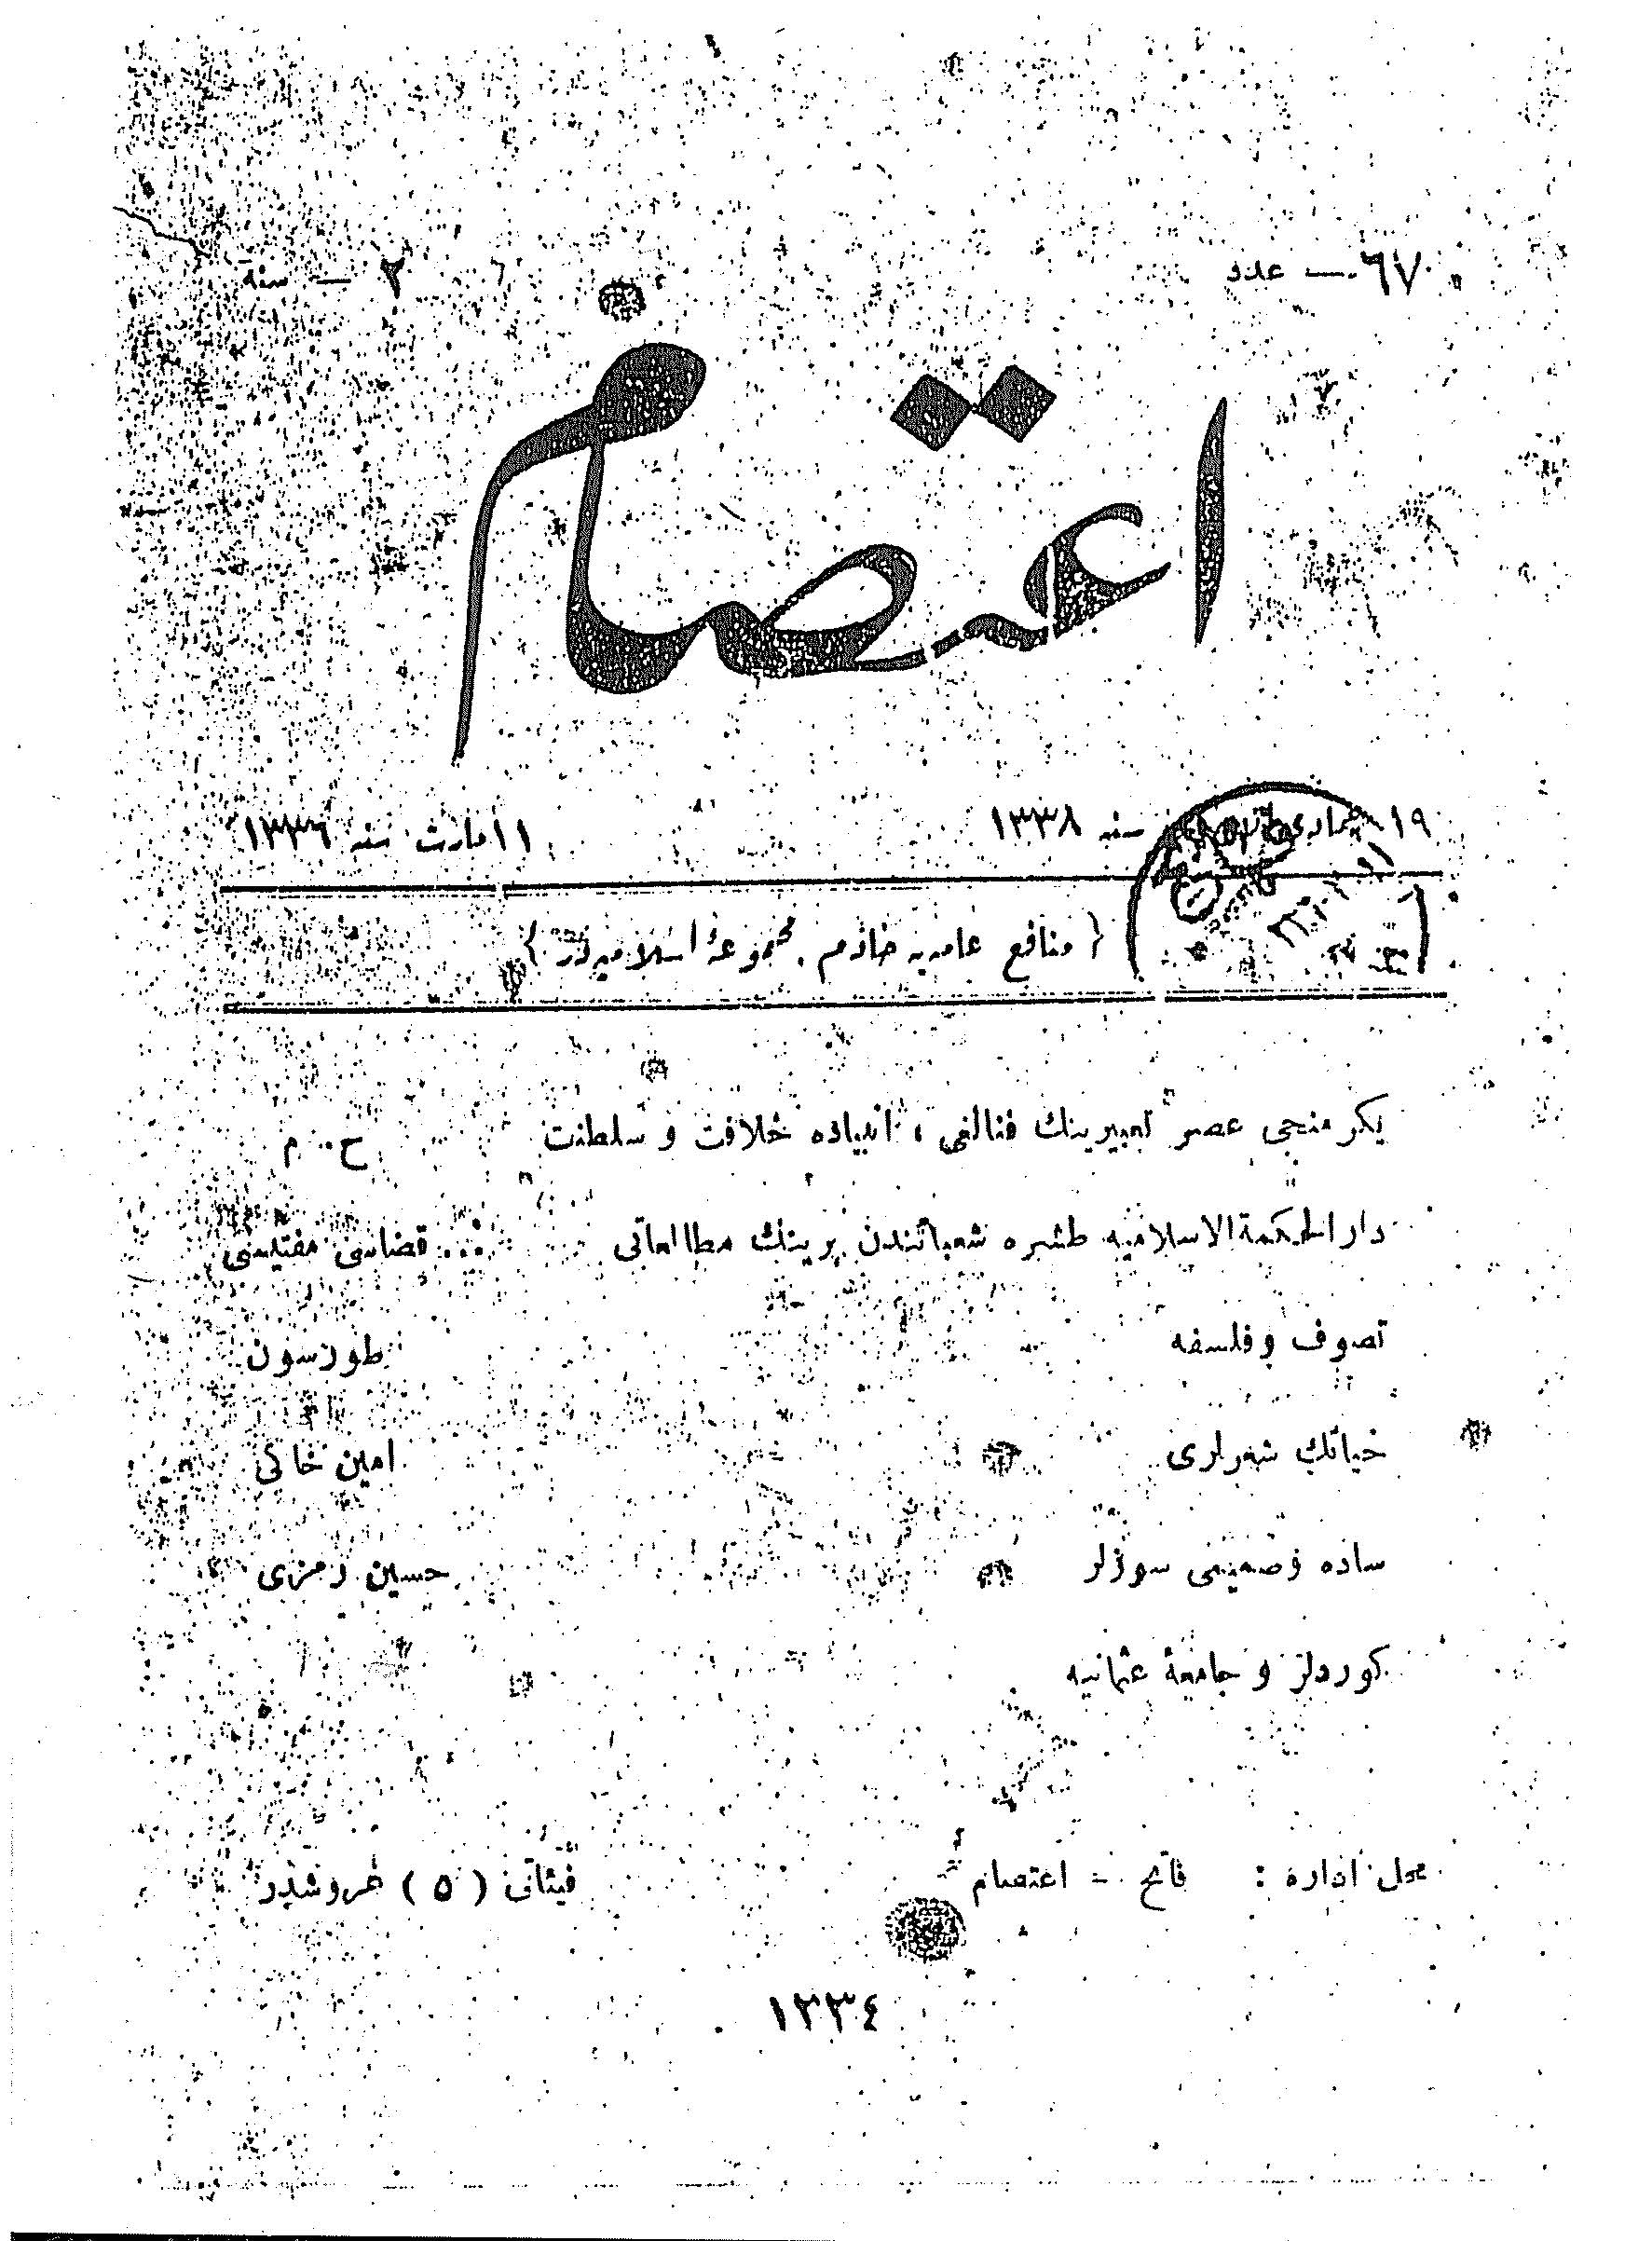 ٦٧ — عدد
٢ — سنه
اعتصام
١٩ جمادى سنه ١٣٣٨
١١ مارت سنه ١٣٣٦
{ منافع عامه‌يه خادم مجموعهٔ اسلاميه‌در }
يكرمنجى عصر تعبيرينك فنالغى ، انبياده خلافت و سلطنت ح . م
دار الحكمة الاسلاميه طشره شعباتندن برينك مطالعاتى ... قضاسى مفتيسى
تصوف و فلسفه طورسون
حياتك شعرلرى امين خاكى
ساده و صميمى سوزلر حسين رمزى
كوردلر و جامعهٔ عثمانيه
محل اداره : فاتح - اعتصام
فيئاتى ( ٥ ) غروشدر
١٣٣٤